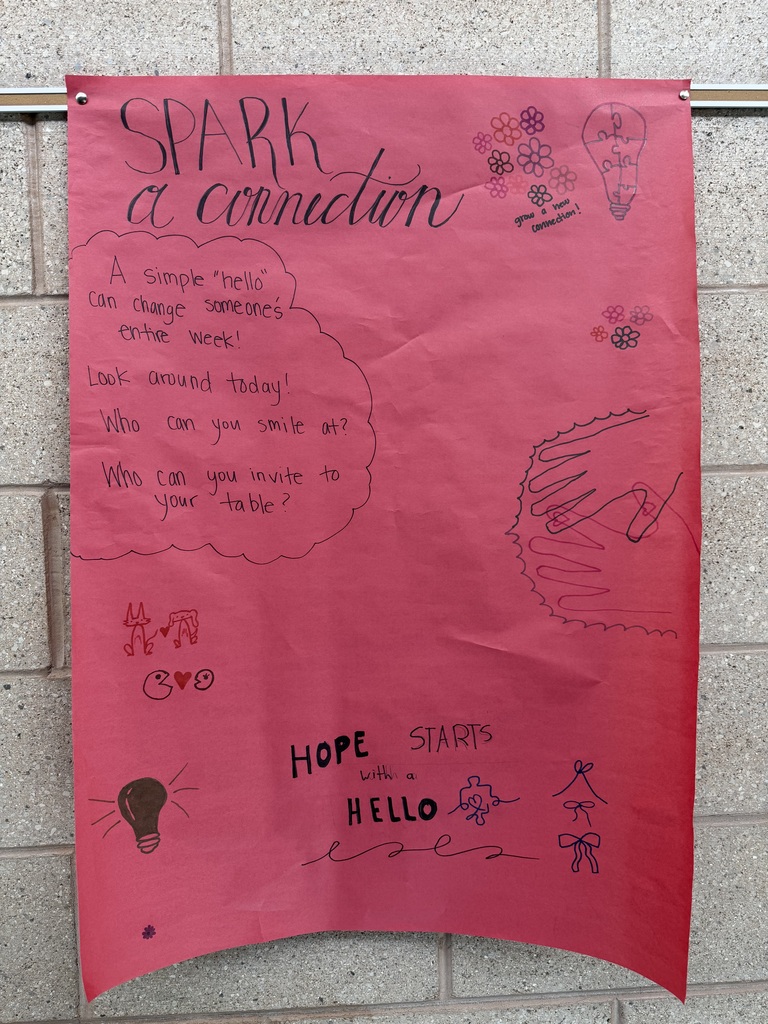 SPARK
a connection
grow a new
connection!
A simple "hello"
can change someone's
entire week!
Look around today!
Who can you smile at?
Who can you invite to
your table?
HOPE STARTS
with a
HELLO